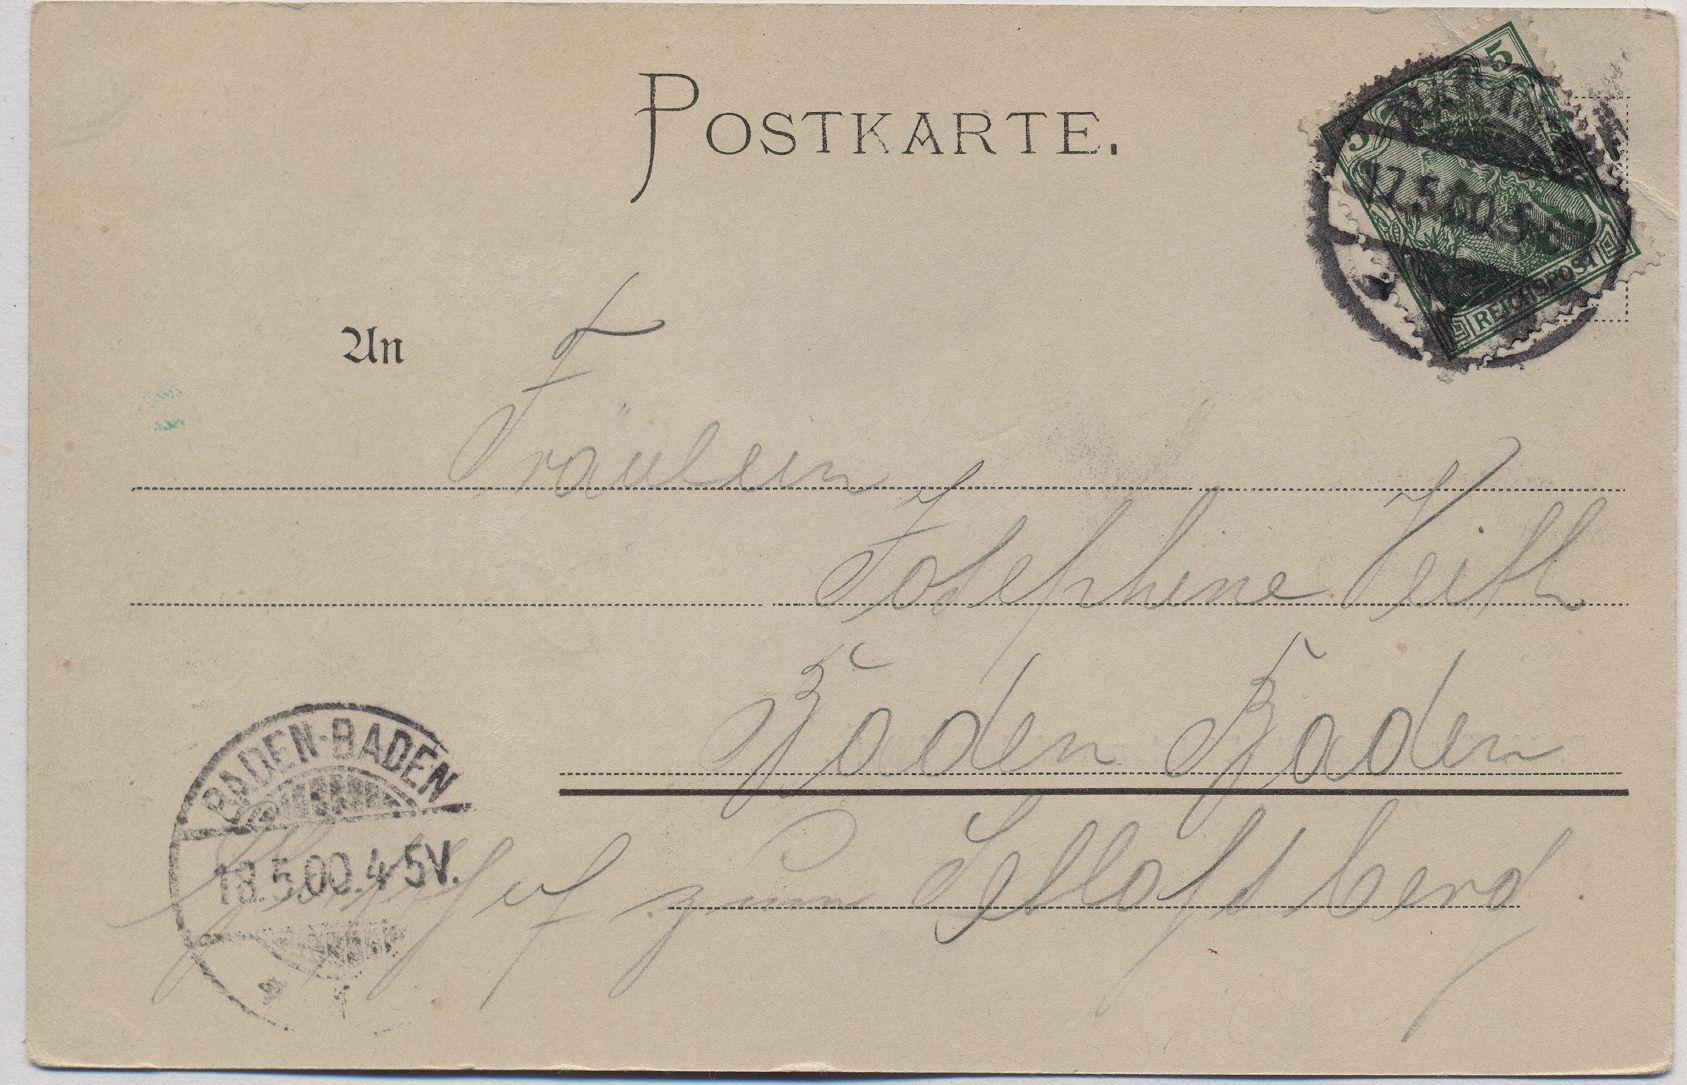 POSTKARTE.
5 5
17.5.00.5
REICHSPOST
An
Fräulein
Josephine Veith
Baden Baden
zum
BADEN-BADEN
18.5.00.4-5V.